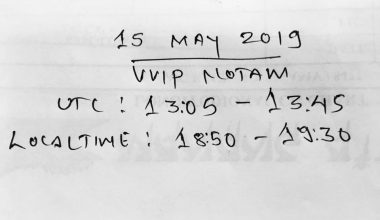 15 MAY 2019
VVIP NOTAM
UTC : 13:05 - 13:45
LOCALTIME : 18:50 - 19:30